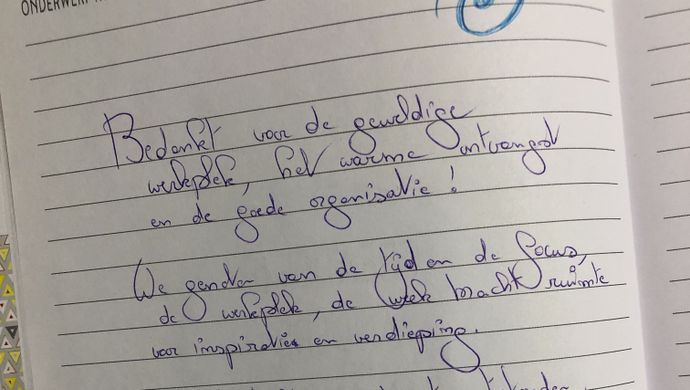 ONDERWERP
Bedankt voor de geweldige
werkplek, het warme ontvangst
en de goede organisatie!
We genoten van de tijd en de focus,
de werkplek, de week bracht ruimte
voor inspiratie en verdieping.